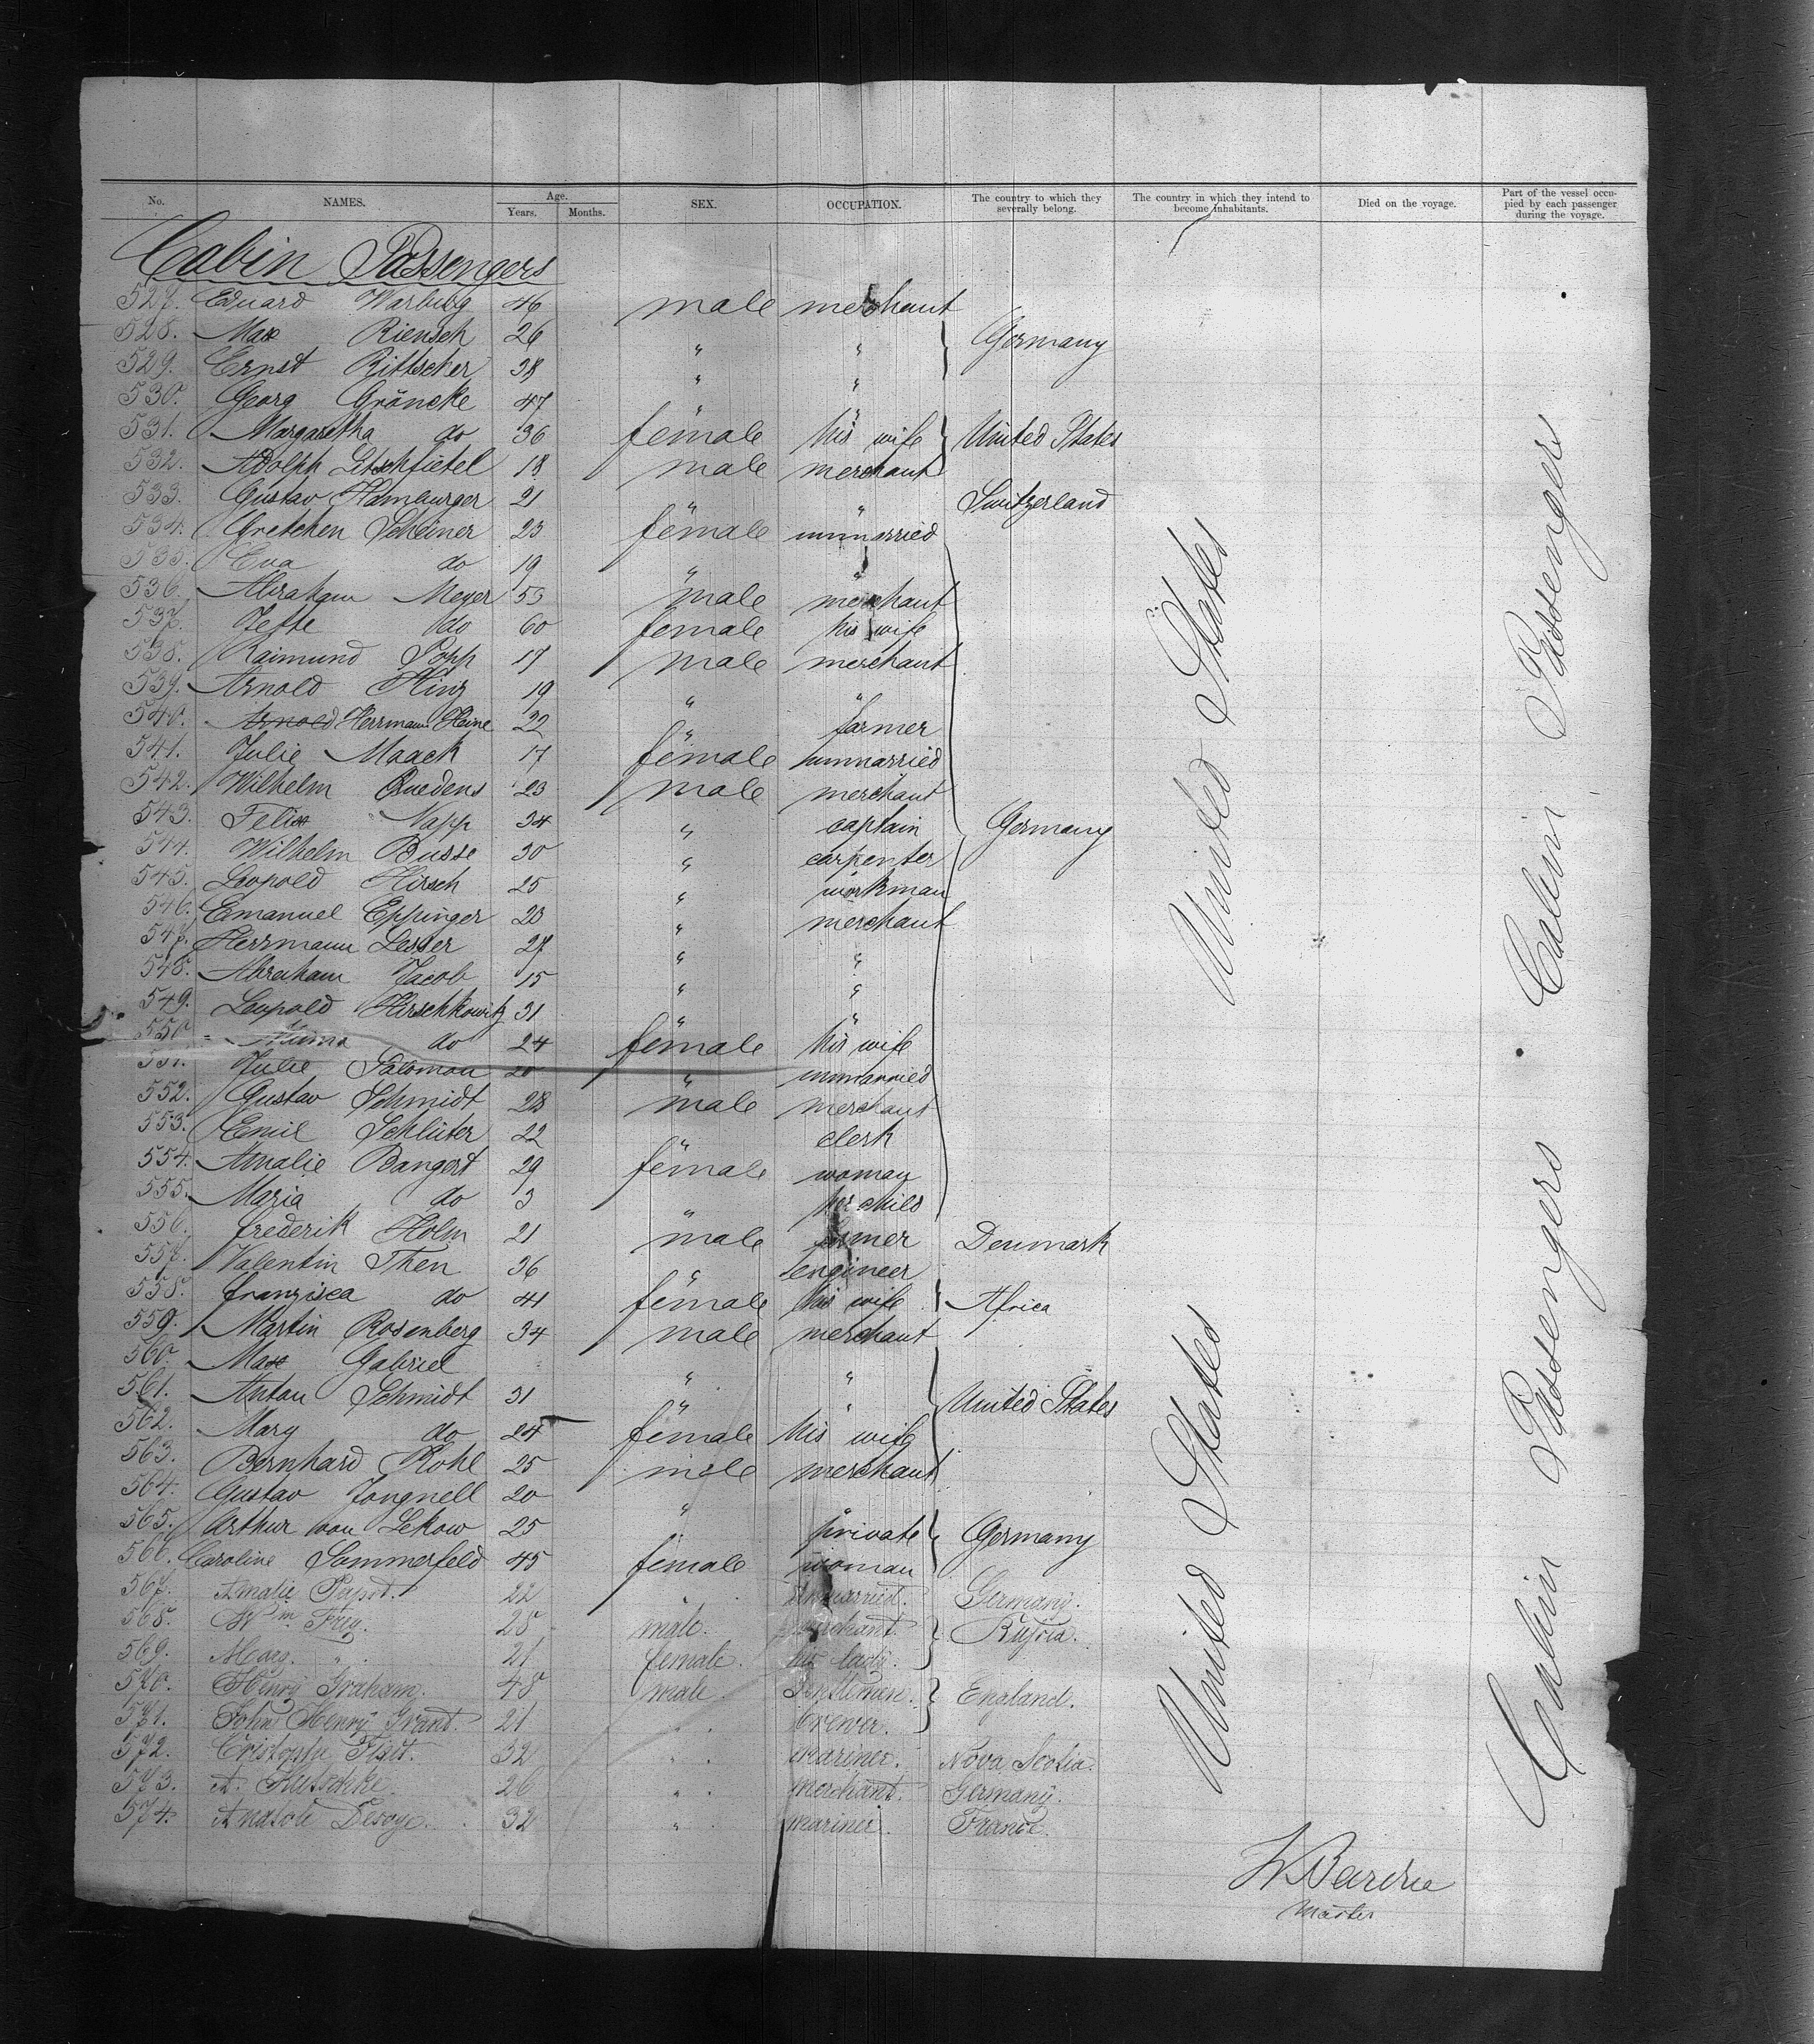 No. NAMES. Age. Years. Months. SEX. OCCUPATION. The country to which they severally belong. The country in which they intend to become inhabitants. Died on the voyage. Part of the vessel occupied by each passenger during the voyage.
Cabin Passengers
527. Eduard Warburg 46 male merchant
528. Max Riensch 26 " " } Germany
529. Ernst Rittscher 38 " "
530. Georg Gröncke 47 " "
531. Margaretha do 36 female his wife } United States
532. Adolph 18 male merchant
533. Gustav Hamburger 21 " " Switzerland
534. Gretchen Scheiner 23 female unmarried
535. Eva do 19 " "
536. Abraham Meyer 53 male merchant
537. Jette do 60 female his wife
538. Raimund Popp 17 male merchant
539. Arnold Hinz 19 " "
540. Arnold Herrmann Heine 22 " farmer
541. Julie Maack 17 female unmarried
542. Wilhelm Quedens 23 male merchant
543. Felix Napp 34 " captain } Germany
544. Wilhelm Busse 30 " carpenter
545. Leopold Hirsch 25 " workman
546. Emanuel Eppinger 23 " merchant
547. Herrmann Lesser 27 " "
548. Abraham Jacob 15 " "
549. Leopold Hirschkowitz 31 " "
550 do 24 female his wife
551. Julie Salomon 20 " unmarried
552. Gustav Schmidt 28 male merchant
553. Emil Schlüter 22 " clerk
554. Amalie Bangert 29 female woman
555. Maria do 3 " her child
556. Frederik Holm 21 male farmer Denmark
557. Valentin Then 36 " engineer
558. Franzisca do 41 female his wife } Africa
559. Martin Rosenberg 34 male merchant
560. Max Gabriel " "
561. Anton Schmidt 31 " " } United States
562. Mary do 24 female his wife
563. Bernhard Kohl 25 male merchant
564. Gustav Jongnell 20 " "
565. Arthur von Lekow 25 " private } Germany
566. Caroline Sommerfeld 45 female woman
567. Amalie 22 " unmarried. Germany.
568. Wm. Frey. 28 male. merchant. } Russia.
569. Mary. " 21 female. his lady.
570. Henry Graham. 48 male. Gentleman. } England.
571. John Henry Grant. 21 " brewer.
572. 32 " mariner. Nova Scotia.
573. A. 26 " merchant. Germany.
574. Anatole Desoye. 32 " mariner. France.
United States
United States
Cabin Passengers
Cabin Passengers
Master